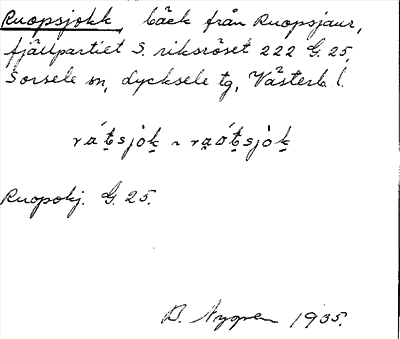 Ruopsjokk, bäck från Ruopsjaur,
fjällpartiet S. riksröset 222 G. 25,
Sorsele sn, Lycksele tg, Västerb. l.
Ruopokj. G. 25.
B. Nygren 1935.